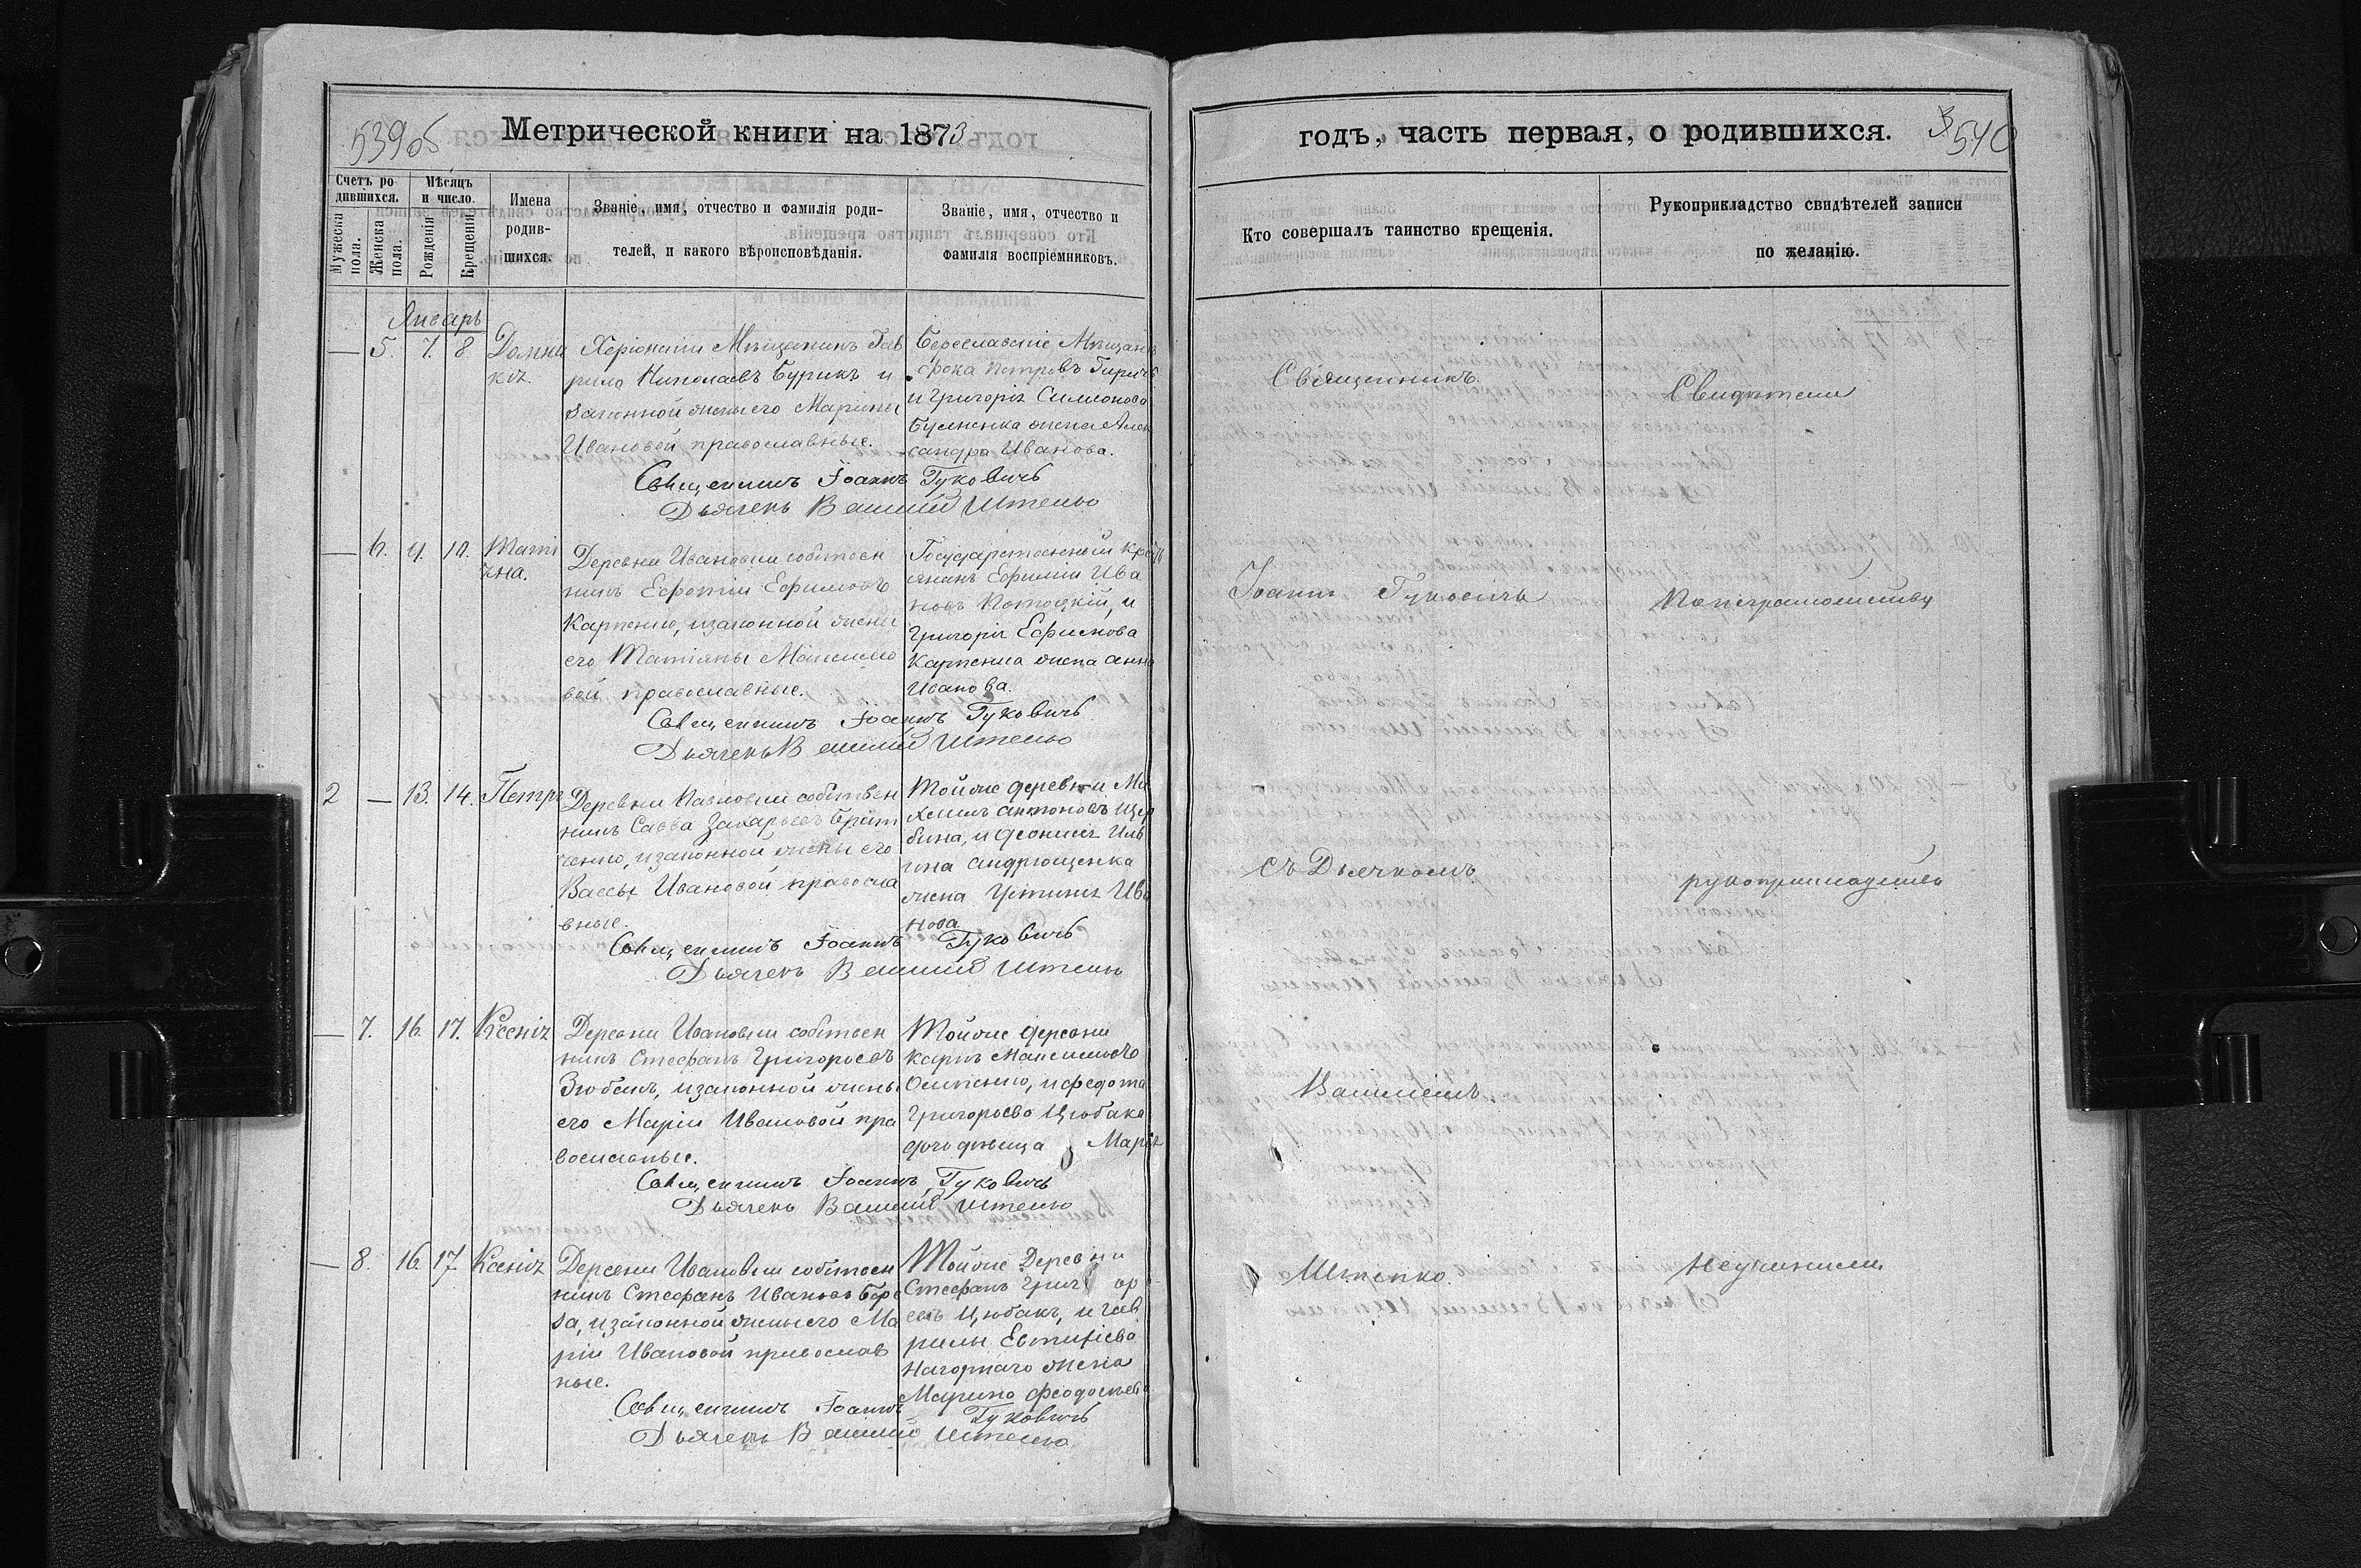 539об
Метрической книги на 1873
Счетъ ро-
дившихся.
Мужеска
пола.
Женска
пола.
Мѣсяцъ
и число.
Рожденія
Крещенія
Имена
родив-
шихся.
Званіе, имя, отчество и фамилія роди-
телей, и какого вѣроисповѣданія.
Званіе, имя, отчество и
фамилія воспріемниковъ.
Январь
— 5. 7. 8 Домни
кіа.
Херсонскій Мѣщанинъ Гав
рило Николаевъ Бурикъ и
законной жены его Марины
Ивановой православные.
Береславскіе Мѣщане
Фока Петровъ
и Григорія Симонова
жена Алек
сандра Иванова.
Священникъ Іоаннъ Гуковичъ
Дьячекъ Василій Штепко
— 6. 9. 10. Таті
яна.
Деревни Ивановки собствен
никъ Ефимовъ
Карпенко, и законной жены
его Татіяны Максимо
вой православные.
Государственный кресть
янинъ Ефимій Ива
новъ Потоцкій, и
Григорія Ефимова
Карпенка жена Анна
Иванова.
Священникъ Іоаннъ Гуковичъ
Дьячекъ Василій Штепко
2 — 13. 14. Петръ
Деревни собствен
никъ Савва Захарьевъ
ченко, и законной жены его
Вассы Ивановой правосла
вные.
Той же деревни Ми
хаилъ Антоновъ Щер
бина, и Діонисія Иль
ина Андрющенка
жена Устинія Ива
нова.
Священникъ Іоаннъ Гуковичъ
Дьячекъ Василій Штепко
— 7. 16. 17. Ксенія
Деревни Ивановки собствен
никъ Стефанъ Григорьевъ
и законной жены
его Маріи Ивановой пра
вославные.
Той же деревни
Карпъ Максимовъ
Осипенко, и Федота
Григорьева Цюбака
дочь дѣвица Марія
Священникъ Іоаннъ Гуковичъ
Дьячекъ Василій Штепко
— 8. 16. 17. Ксенія
Деревни Ивановки собствен
никъ Стефанъ Ивановъ Бере
за, и законной жены его Ма
ріи Ивановой православ
ные.
Той же Деревни
Стефанъ Григорь
евъ Цюбакъ, и Гав
рилы Евтихіева
Нагорнаго жена
Марина Феодосіева
Священникъ Іоаннъ Гуковичъ
Дьячекъ Василій Штепко
годъ, часть первая, о родившихся.
540
Кто совершалъ таинство крещенія.
Рукоприкладство свидѣтелей записи
по желанію.
Священникъ
Іоаннъ Гуковичъ
съ Дьячкомъ
Василіемъ
Штепко.
Свидѣтели
По неграмотству
рукоприкладство
Неучинили